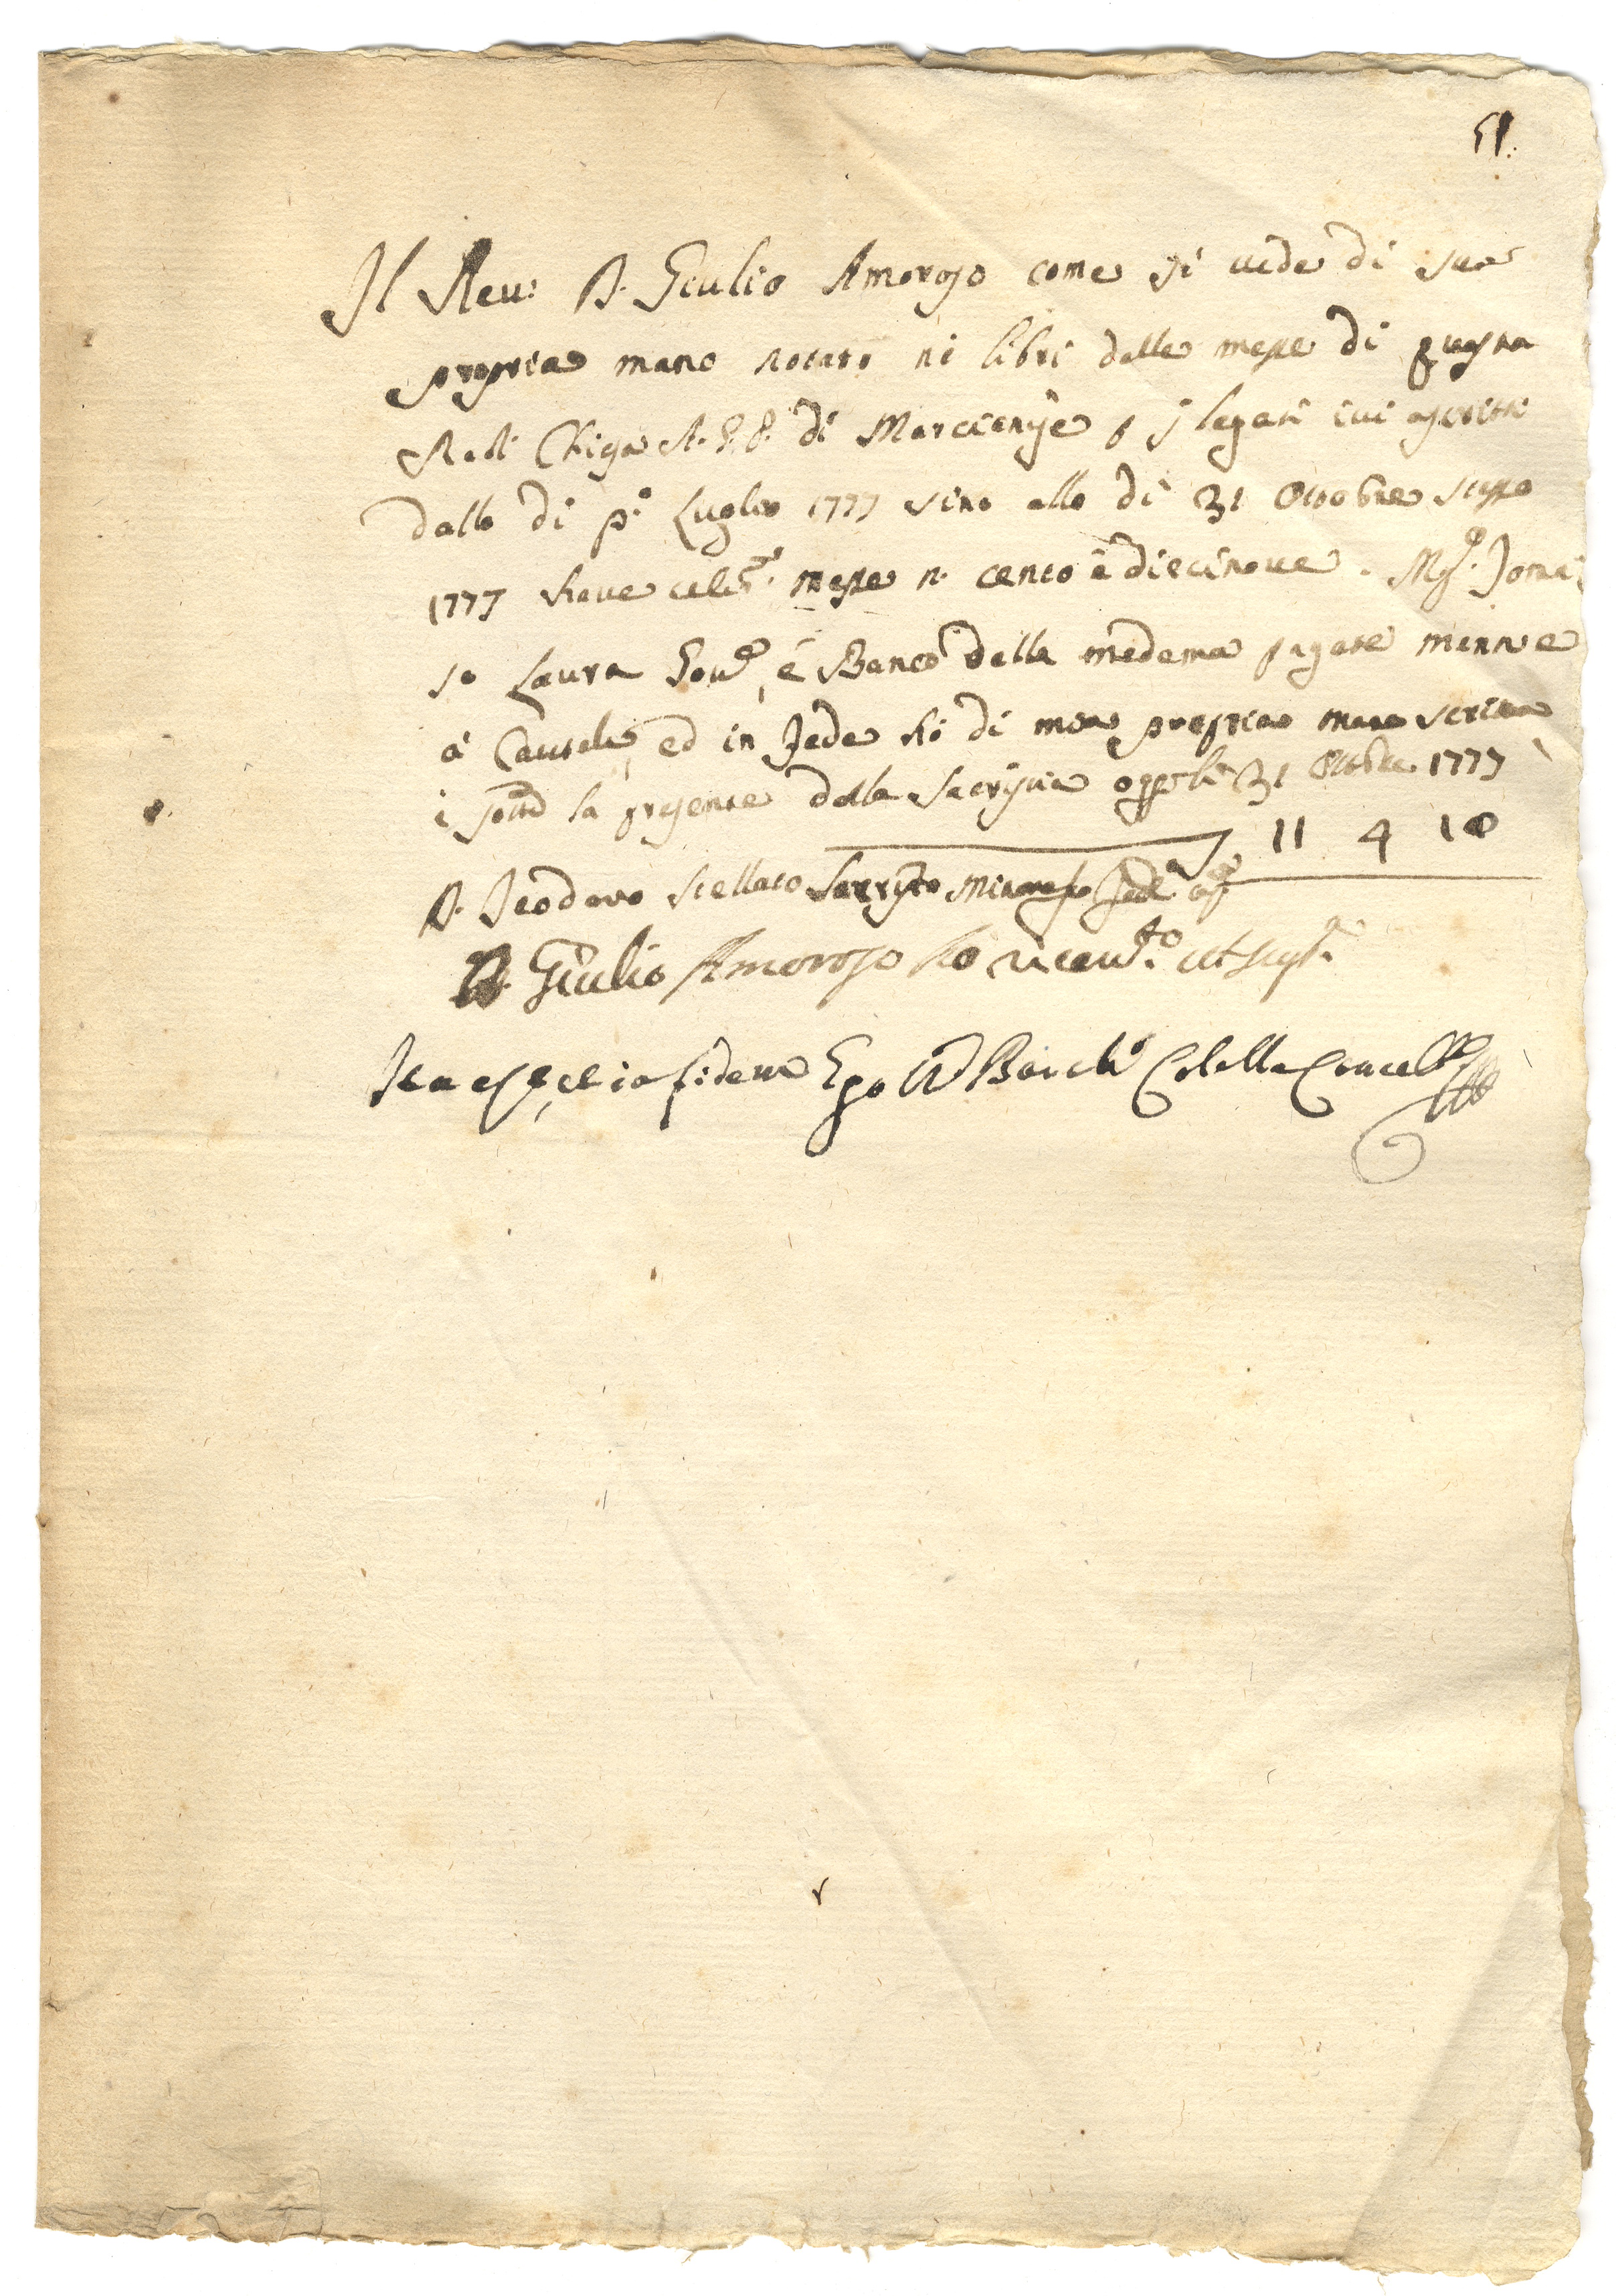 51.
Il Reu: D. Giulio Amoroso come si uede di sua
propria mano notato ni libri delle messe di questa
Real Chiesa A. G. P. di Marcianise p j legati iui ascritti
dallo di p.º Luglio 1777 sino allo di 31 Ottobre stesso
1777 haue celeb. messe n. cento è diecinoue. Mg.
so Laura Gou.e, è Banco della medema pagate
à Cautela, ed in fede hò di mia propria mano scritta
è la presente dalla Sacristia oggi li 31 Ottobre 1777
11 4 10
D. Teodoro Stellato Sacristo fede
D. Giulio Amoroso ho riceuto ut sup.a
Ita est et in fidem Ego Colella Cancell.e